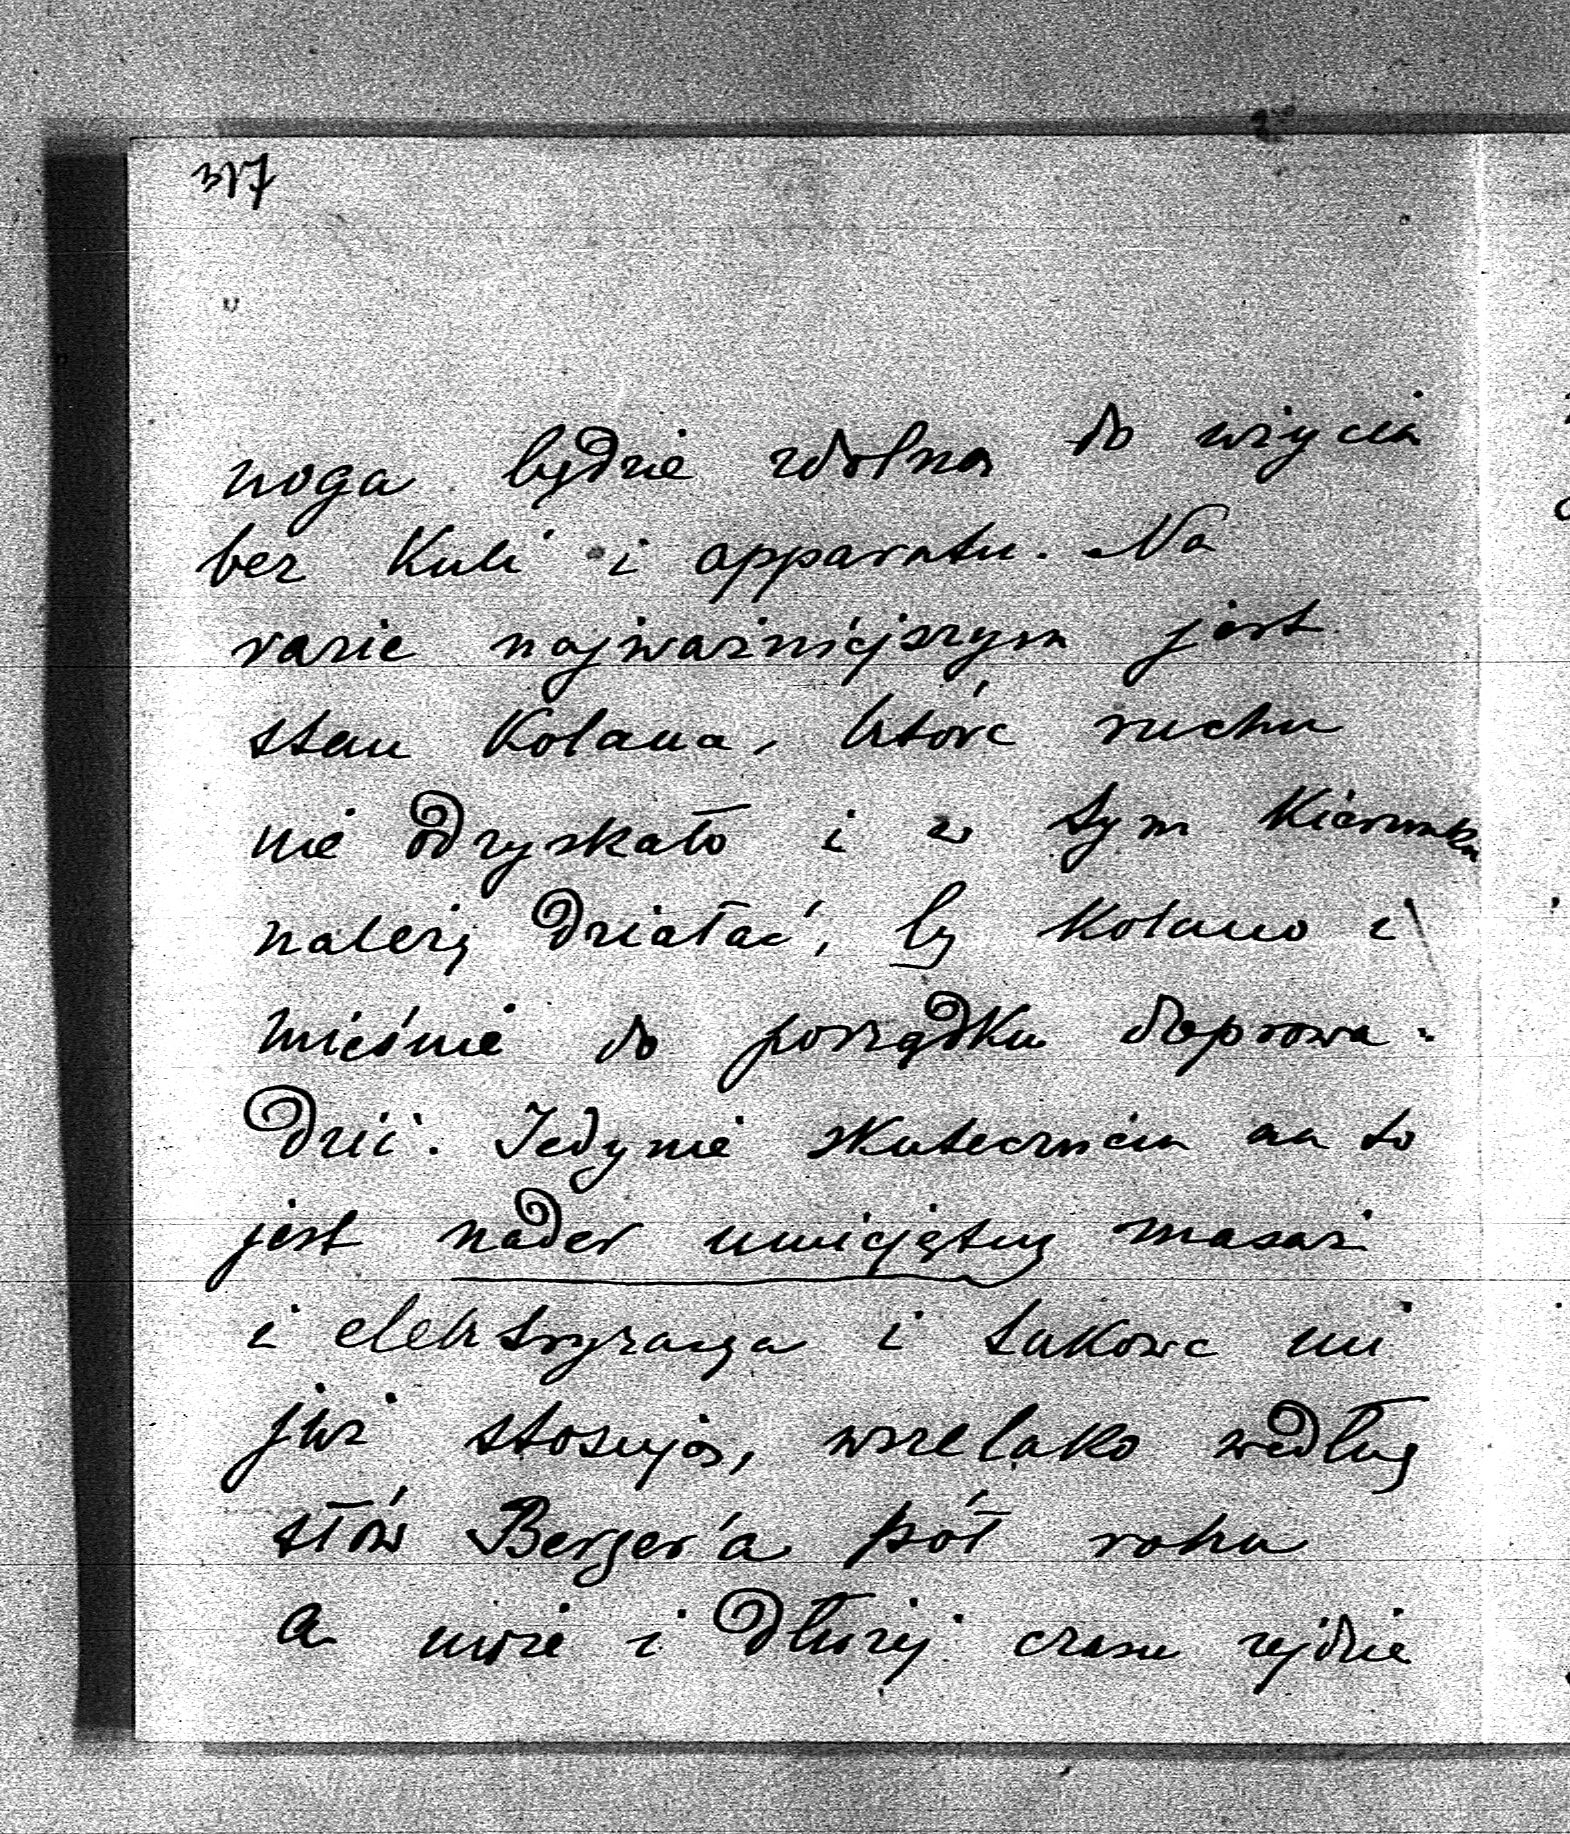 noga będzie zdolna do użycia
bez kuli i apparatu. Na
razie najważniejszym jest
stan kolana, które ruchu
nie odzyskało i w tym kierunku
należy działać, by kolano i
mięśnie do porządku doprowa-
dzić. Jedynie skutecznem na to
jest nader umiejętny masaż
i elektryzacja i takowe mi
już stosują, wszelako według
słów Berger'a pół roku
a może i dłużej czasu zejdzie